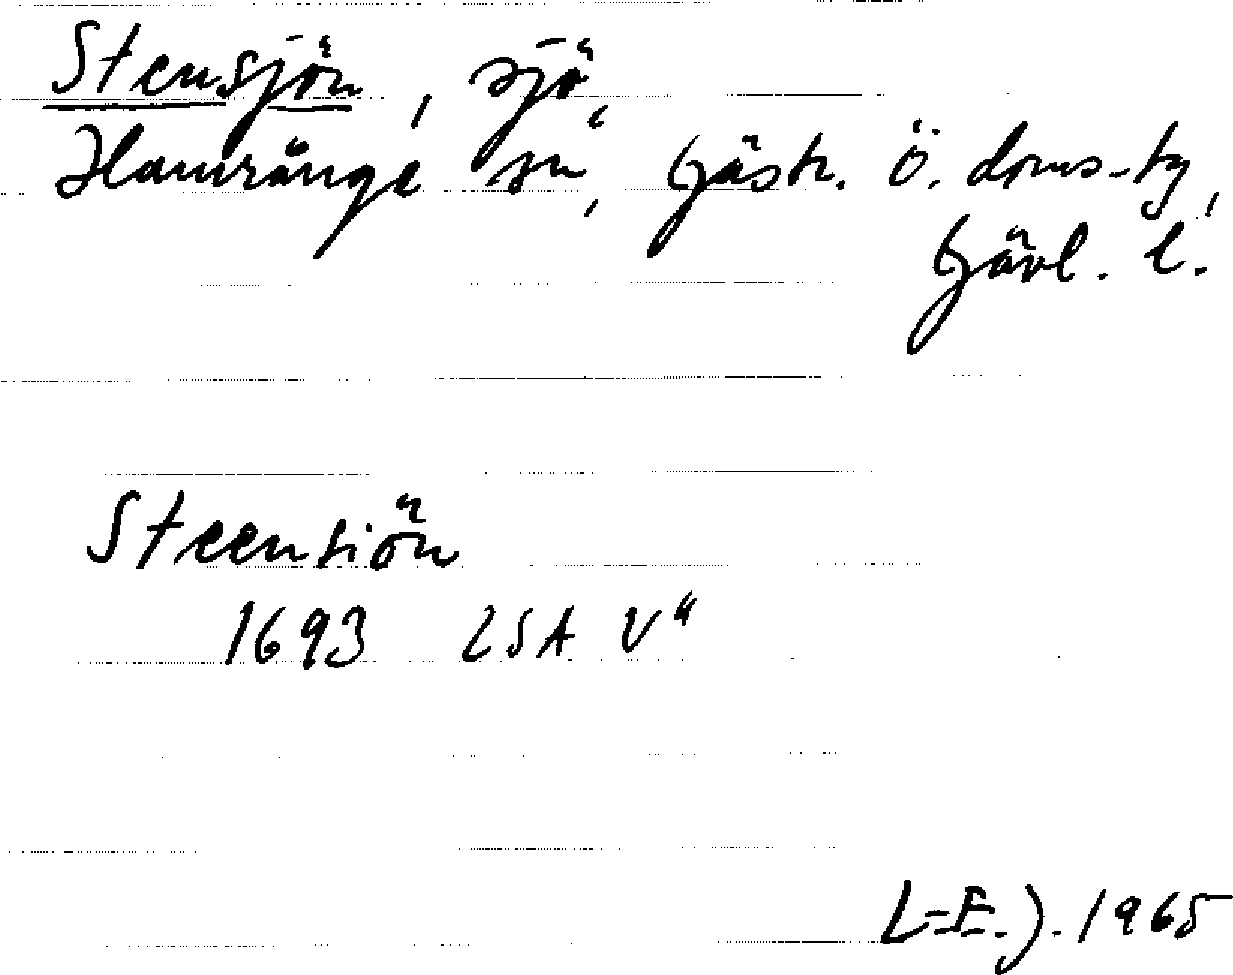 Stensjön, sjö,
Hamrånge sn, Gästr. Ö. doms-tg,
Gävl. l.
Steensiön
1693 LSA V"
L-E. J. 1965